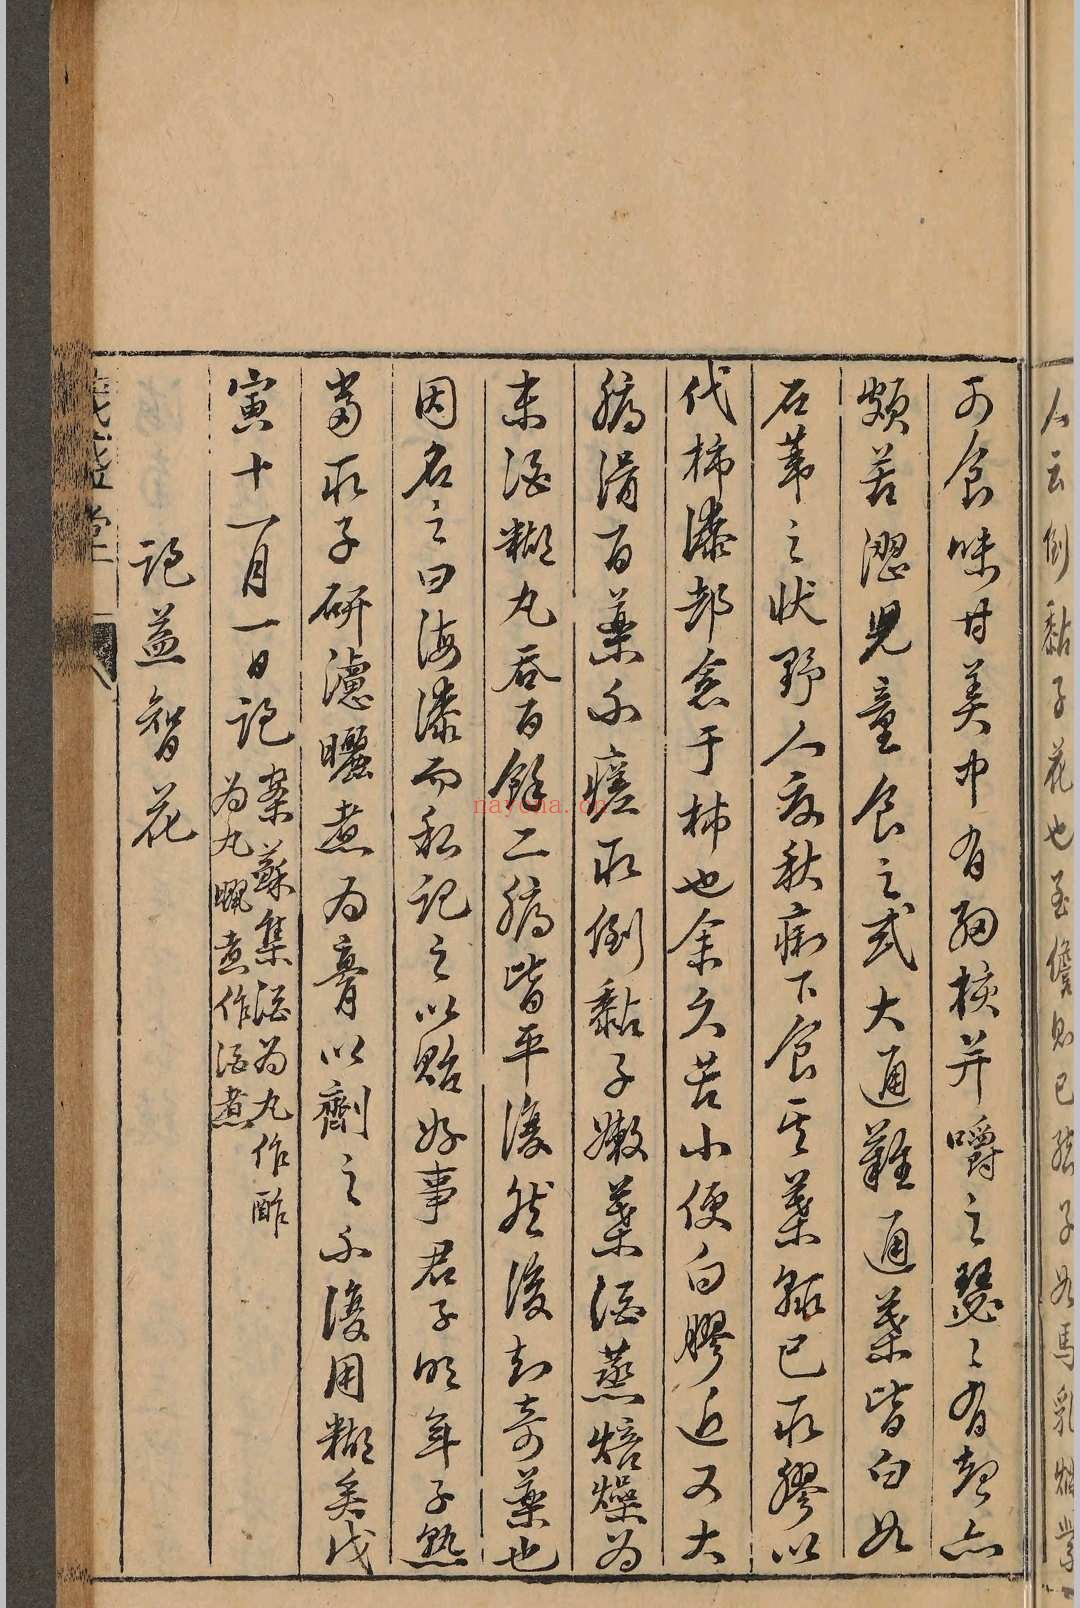 人云倒黏子花也至儋則已結子如馬乳爛
可食味甘美中有細核并嚼之瑟々有聲亦
頗苦澀兒童食之或大通難通葉皆白如
石葦之狀野人夏秋痢下食其葉輒已取膠以
代柿漆却愈于柿也余久苦小便白膠近又大
腸滑百藥不瘥取倒黏子嫩葉酒蒸焙燥為
末酒糊丸吞百餘二腸皆平復然後知奇藥也
因名之曰海漆而私記之以貽好事君子明年子熟
當取子研濾曬煮為膏以劑之不復用糊矣戊
寅十一月一日記
案蘇集酒為丸作醋
為丸曬煮作酒煮
記益智花
naycha.cn